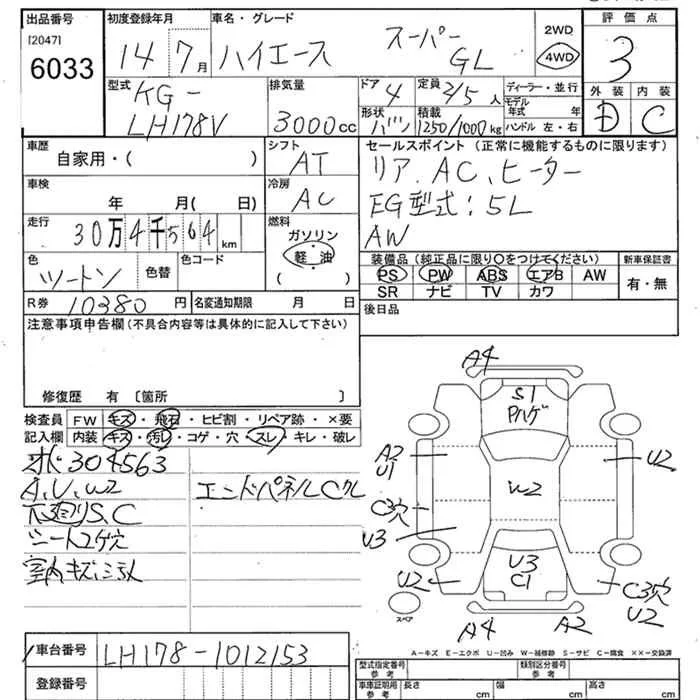 出品番号 初度登録年月 車名・グレード 2WD 評価点
[2047] 14 7月 ハイエース スーパーGL 4WD 3
6033
型式 排気量 ドア 4 定員 2/5人 ディーラー・並行 外装 内装
KG- モデル年式 年 D C
LH178V 3000cc 形状 バン 積載 1250/1000kg ハンドル 左・右
車歴 シフト セールスポイント (正常に機能するものに限ります)
自家用・( ) AT リア AC、ヒーター
車検 冷房 EG型式:5L
年 月( 日) AC AW
走行 燃料
30万4千564km ガソリン
軽油
( )
装備品(純正品に限り○をつけてください) 新車保証書
色 色替 色コード PS PW ABS エアB AW 有・無
ツートン SR ナビ TV カワ
R券 10380円 名変通知期限 月 日 後日品
注意事項申告欄(不具合内容等は具体的に記入して下さい)
修復歴 有 〔箇所 〕
検査員 FW キズ・飛石・ヒビ割・リペア跡・×要
記入欄 内装 キズ・汚れ・コゲ・穴・スレ・キレ・破レ
304563
A、U、W2 エンドパネルCクレ
下廻りS、C
シートコゲ穴
室内キズ汚れ
A4
S1
Pハゲ
A2
U1
U2
W2
C3穴
U3
U3
C1
U2
C3穴
U2
スペア
A4 A2
A-キズ E-エクボ U-凹み W-補修跡 S-サビ C-腐食 ××-交換済
車台番号 LH178-1012153
登録番号
型式指定番号 参考 類別区分番号 参考
車庫証明用 参考 長さ cm 幅 cm 高さ cm